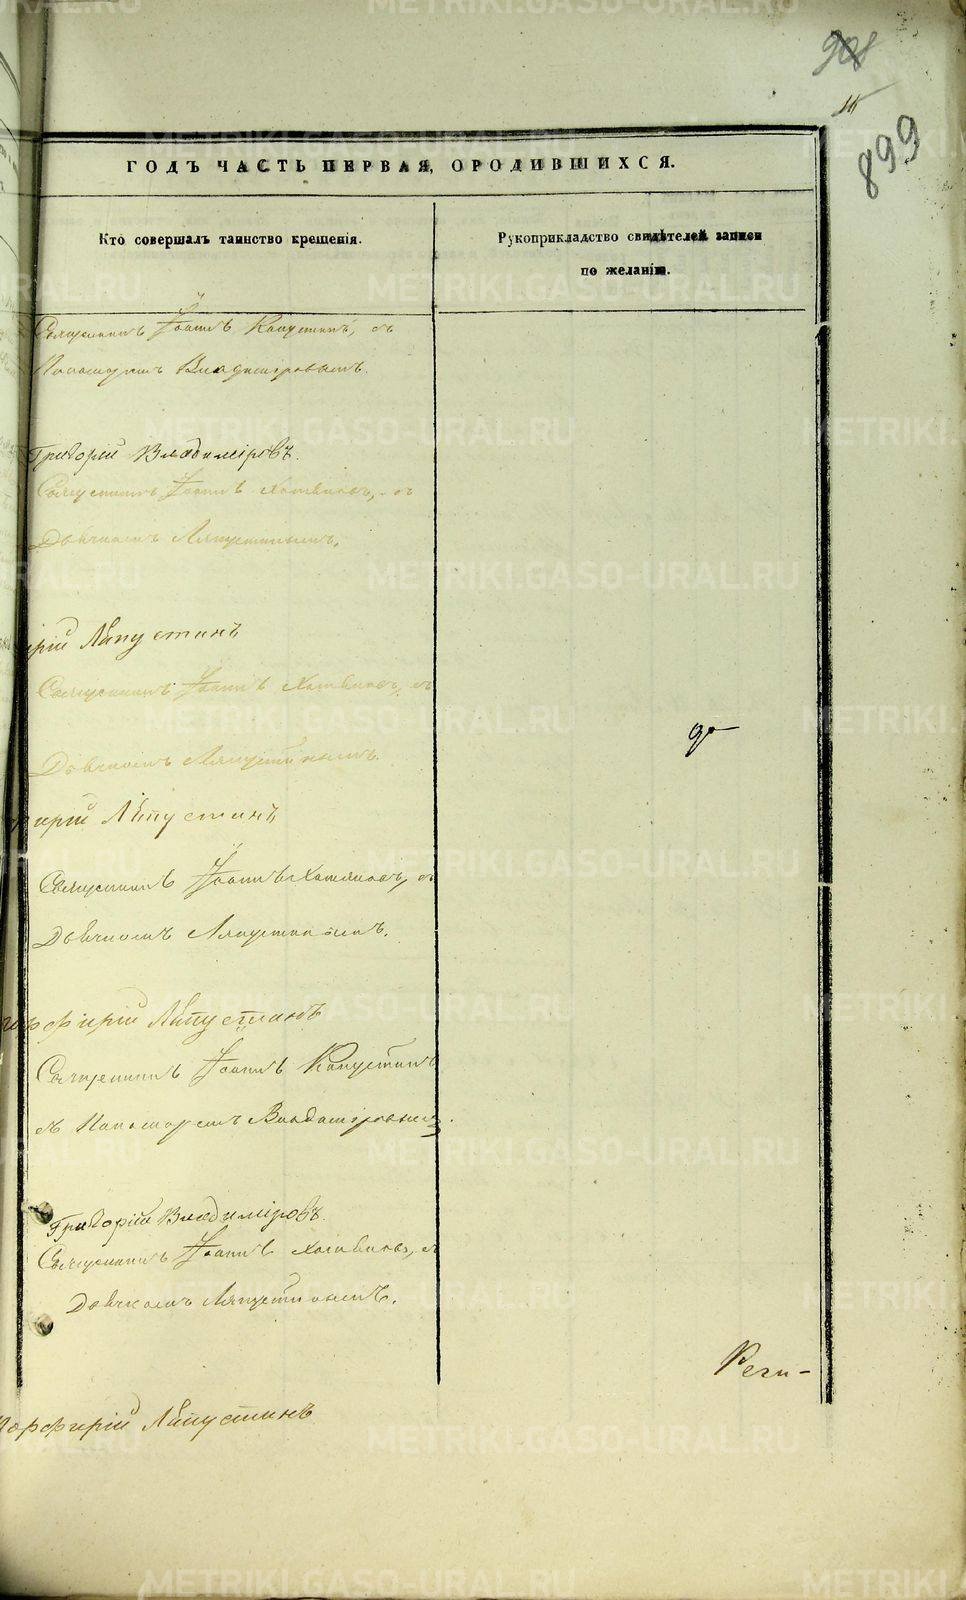 908
15
899
ГОДЪ ЧАСТЬ ПЕРВАЯ, О РОДИВШИХСЯ.
Кто совершалъ таинство крещенія.
Рукоприкладство свидѣтелей записи
по желанію.
Священникъ Іоаннъ Капустинъ, съ
Пономаремъ Владиміровымъ.
Григорій Владиміровъ.
Священникъ Іоаннъ Хотяновъ, съ
Дьячкомъ Ляпустинымъ.
ирій Ляпустинъ
Священникъ Іоаннъ Хотяновъ, съ
Дьячкомъ Ляпустинымъ.
ирій Ляпустинъ
Священникъ Іоаннъ Хотяновъ, съ
Дьячкомъ Ляпустинымъ.
Порфирій Ляпустинъ
Священникъ Іоаннъ Капустинъ
съ Пономаремъ Владиміровымъ.
Григорій Владиміровъ.
Священникъ Іоаннъ Хотяновъ, съ
Дьячкомъ Ляпустинымъ.
Порфирій Ляпустинъ
Реги-
METRIKI.GASO-URAL.RU